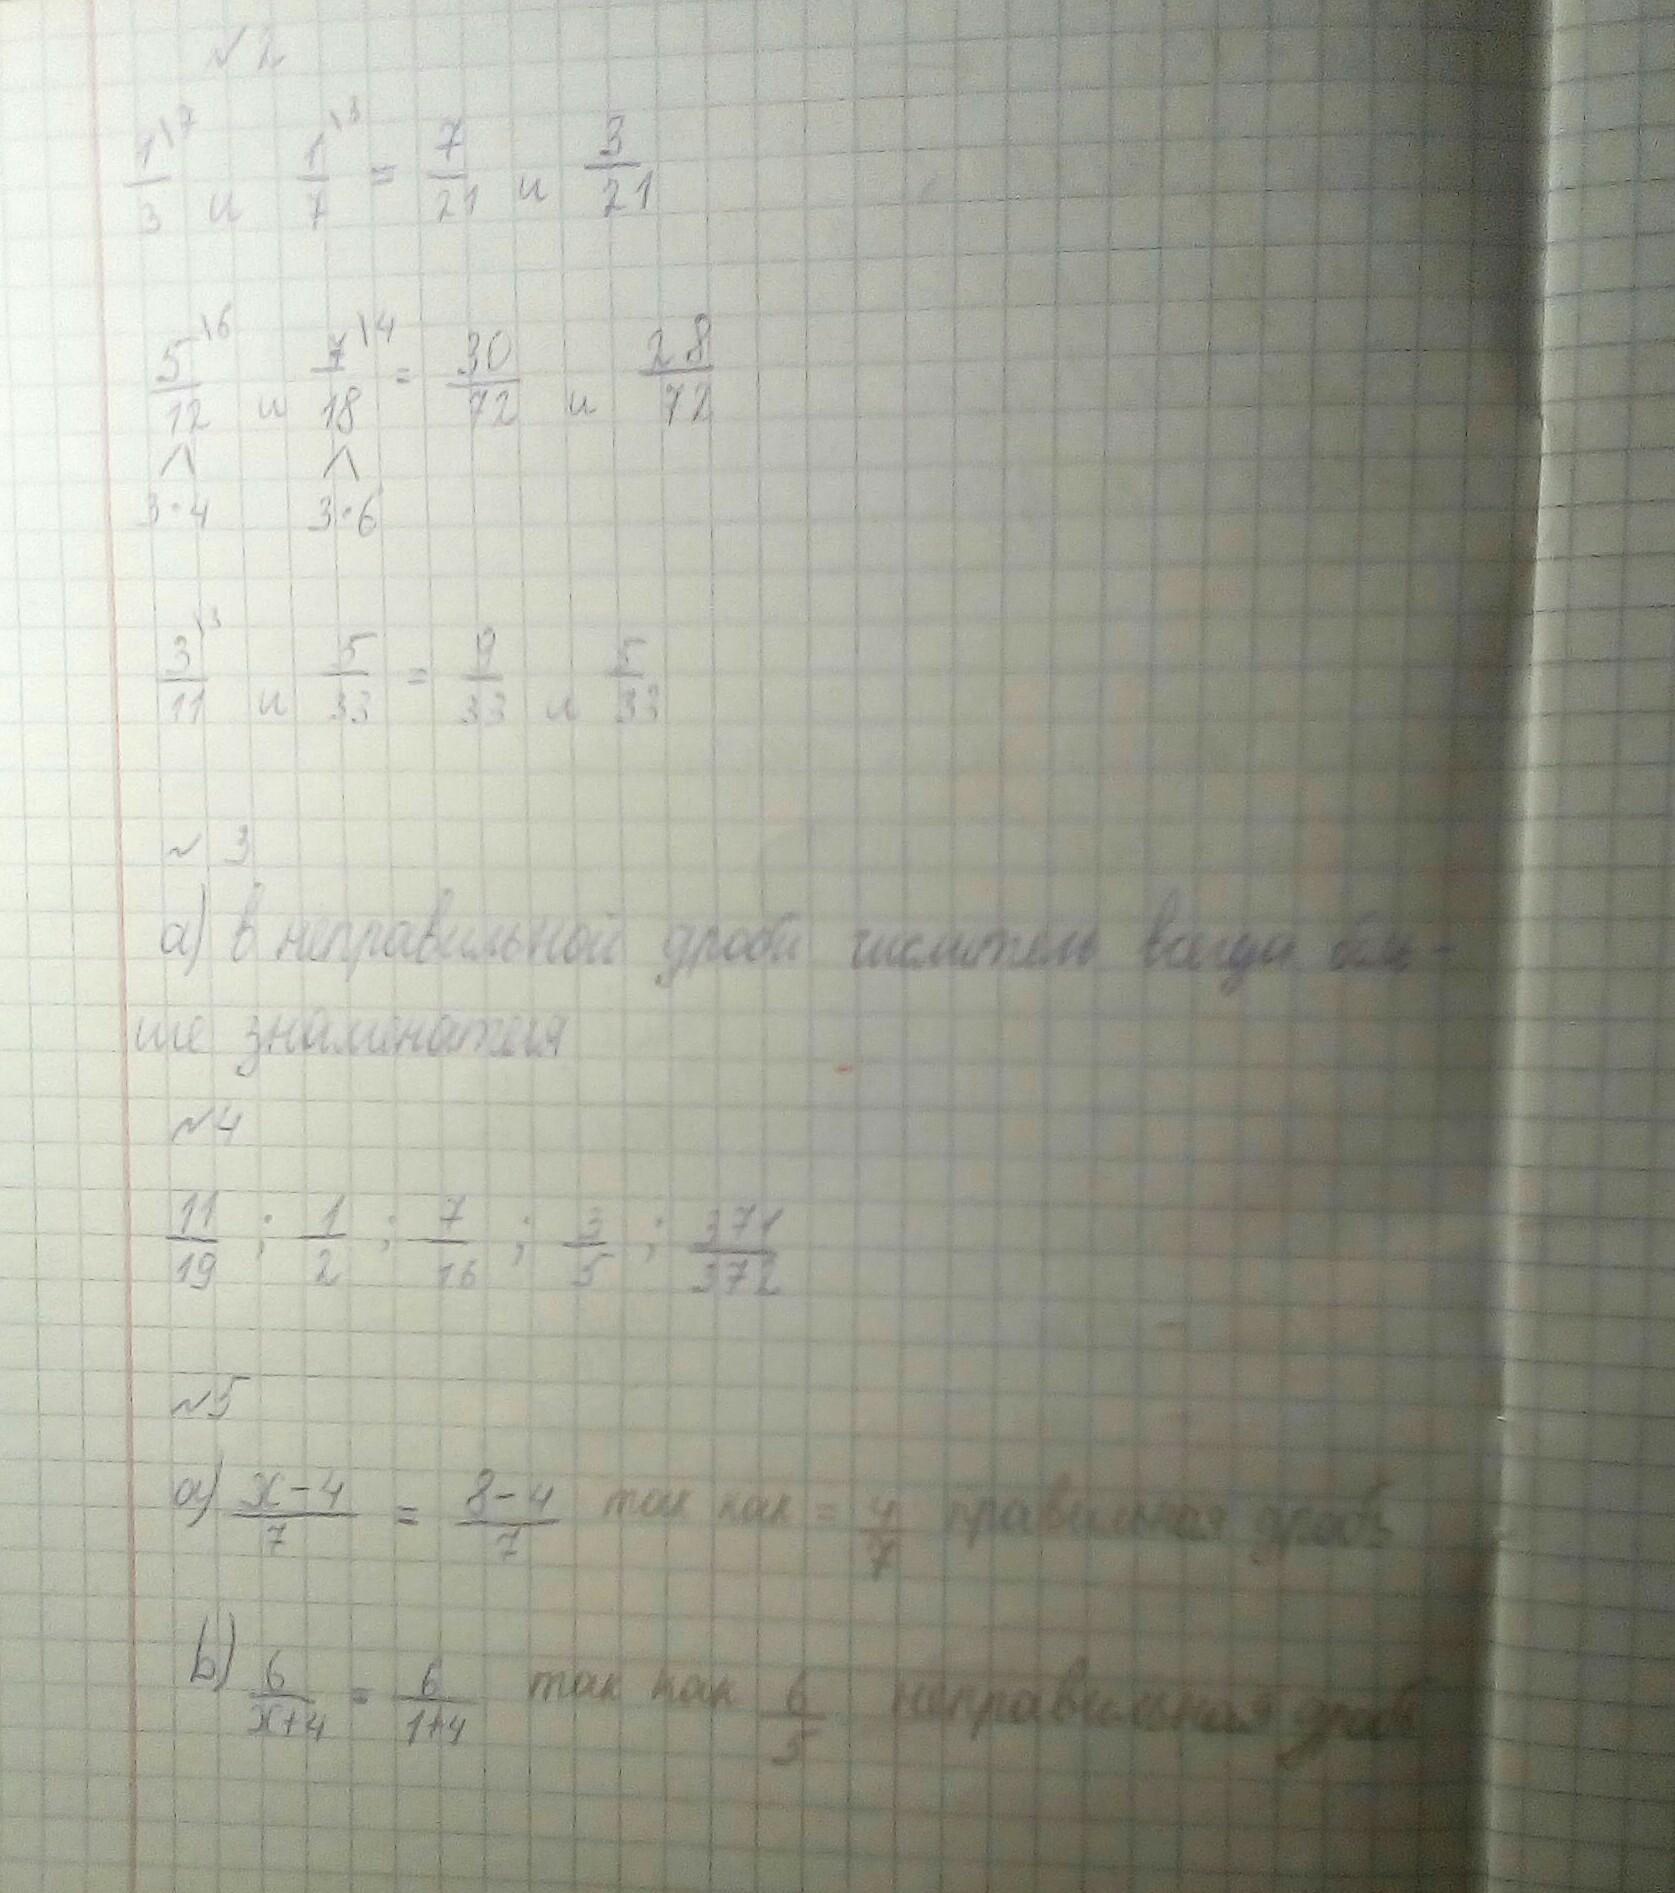 №2
1\7/3 и 1\3/7 = 7/21 и 3/21
5\6/12 и 7\4/18 = 30/72 и 28/72
3·4 3·6
3\3/11 и 5/33 = 9/33 и 5/33
№3
а) в неправильной дроби числитель всегда боль-
ше знаменателя
№4
11/19 ; 1/2 ; 7/16 ; 3/5 ; 371/372
№5
а) x-4/7 = 8-4/7 так как = 4/7 правильная дробь
b) 6/x+4 = 6/1+4 так как 6/5 неправильная дробь